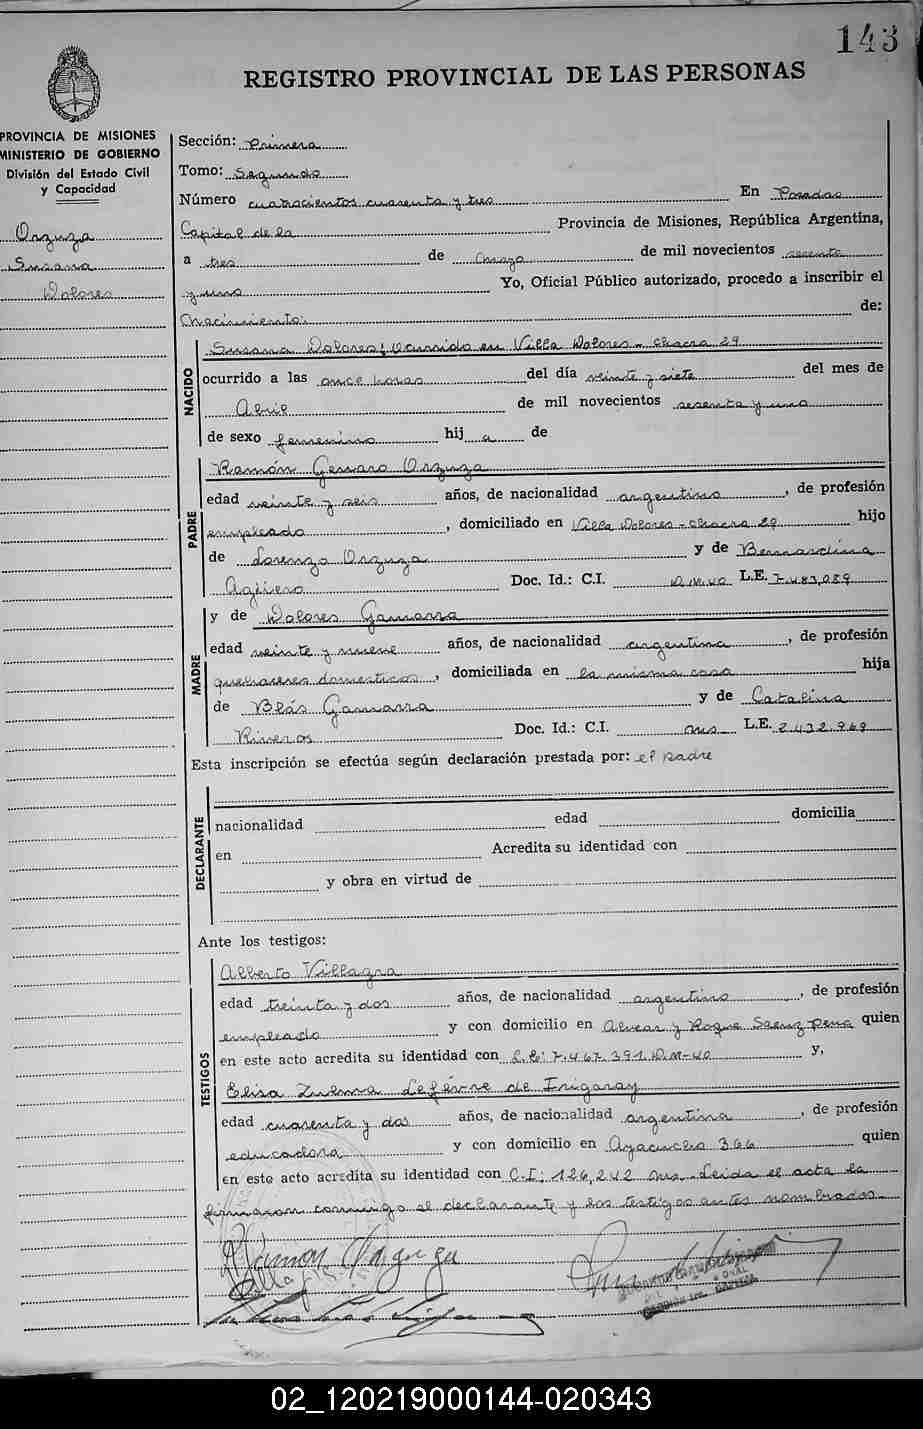 143
REGISTRO PROVINCIAL DE LAS PERSONAS
PROVINCIA DE MISIONES
MINISTERIO DE GOBIERNO
División del Estado Civil
y Capacidad
Orzuza
Susana
Dolores
Sección: Primera
Tomo: Segundo
Número cuatrocientos cuarenta y tres En Posadas
Capital de la Provincia de Misiones, República Argentina,
a tres de Mayo de mil novecientos sesenta
y uno Yo, Oficial Público autorizado, procedo a inscribir el
Nacimiento: de:
NACIDO
Susana Dolores: Ocurrido en Villa Dolores - chacra 29
ocurrido a las once horas del día veinte y siete del mes de
Abril de mil novecientos sesenta y uno
de sexo femenino hij a de
PADRE
Ramón Genaro Orzuza
edad veinte y seis años, de nacionalidad argentino, de profesión
empleado, domiciliado en Villa Dolores - chacra 29 hijo
de Lorenzo Orzuza y de Bernardina
Agüero Doc. Id.: C.I. D.M.40 L.E. 7.483,089
MADRE
y de Dolores Gamarra
edad veinte y nueve años, de nacionalidad argentina, de profesión
quehaceres domesticos, domiciliada en la misma casa hija
de Blás Gamarra y de Catalina
Riveros Doc. Id.: C.I. Mis. L.E. 2.432.969
Esta inscripción se efectúa según declaración prestada por: el padre
DECLARANTE
nacionalidad edad domicilia
en Acredita su identidad con
y obra en virtud de
Ante los testigos:
TESTIGOS
Alberto Villagra
edad treinta y dos años, de nacionalidad argentino, de profesión
empleado y con domicilio en Alvear y Roque Saenz Pena quien
en este acto acredita su identidad con L.E: 7.467.391.D.M-40 y,
Elisa Zulema Lefévre de Irigaray
edad cuarenta y dos años, de nacionalidad argentina, de profesión
educadora y con domicilio en Ayacucho 366 quien
en este acto acredita su identidad con C.I: 126,242 Mis. Leida el acta la
firmaron conmigo el declarante y los testigos antes nombrados.
Ramon Orzuza
02_120219000144-020343